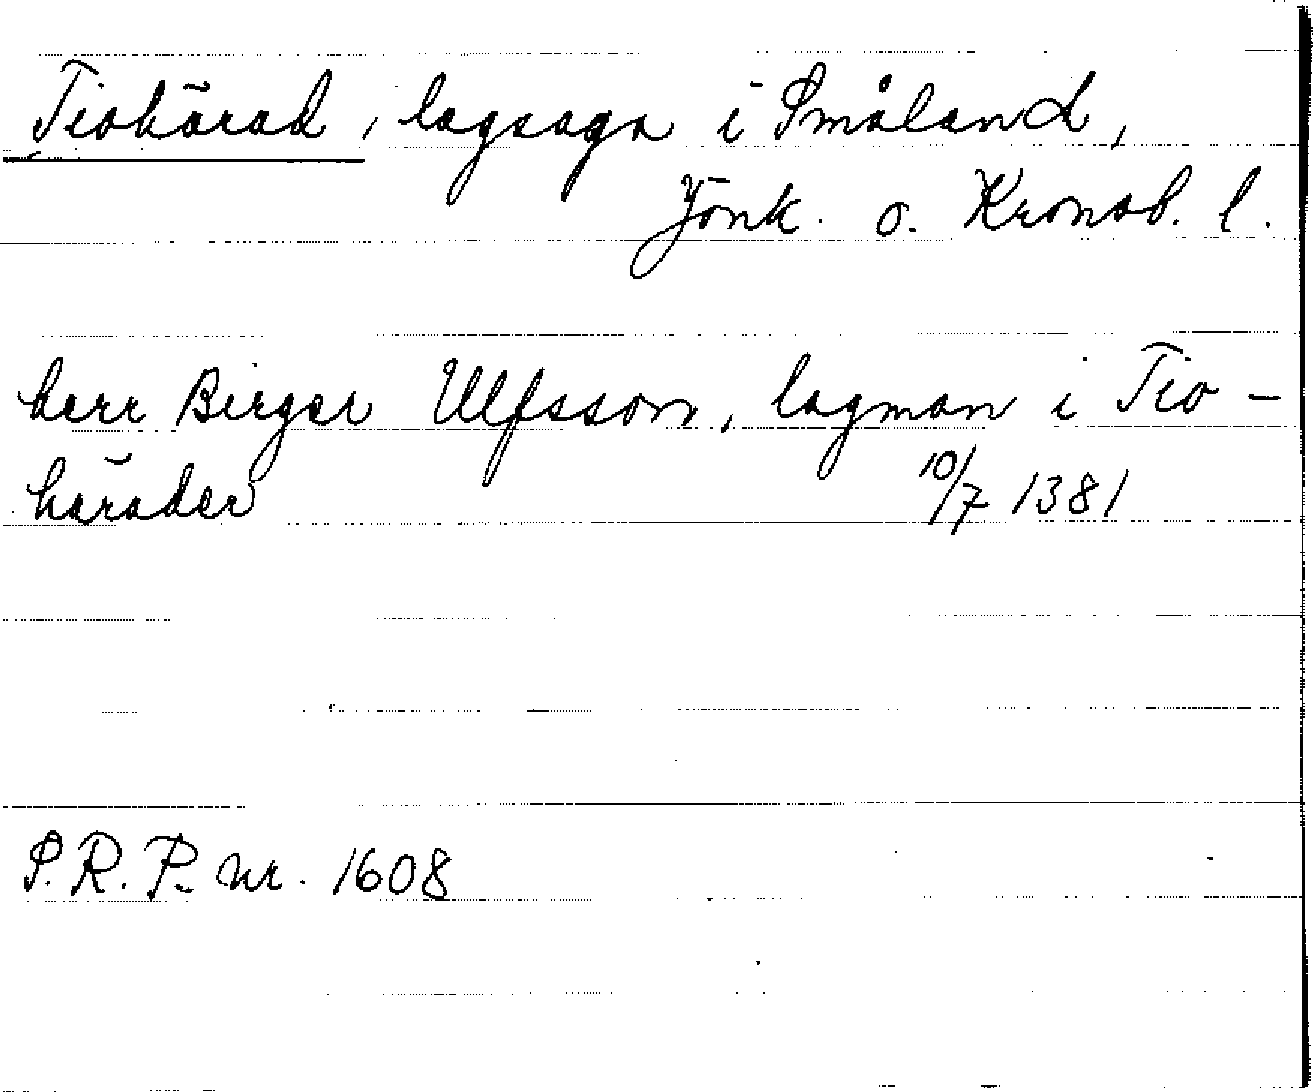 Tiohärad, lagsaga i Småland,
Jönk. o. Kronob. l.
herr Birger Ulfsson, lagman i Tio-
härader 10/7 1381
S.R.P. nr. 1608